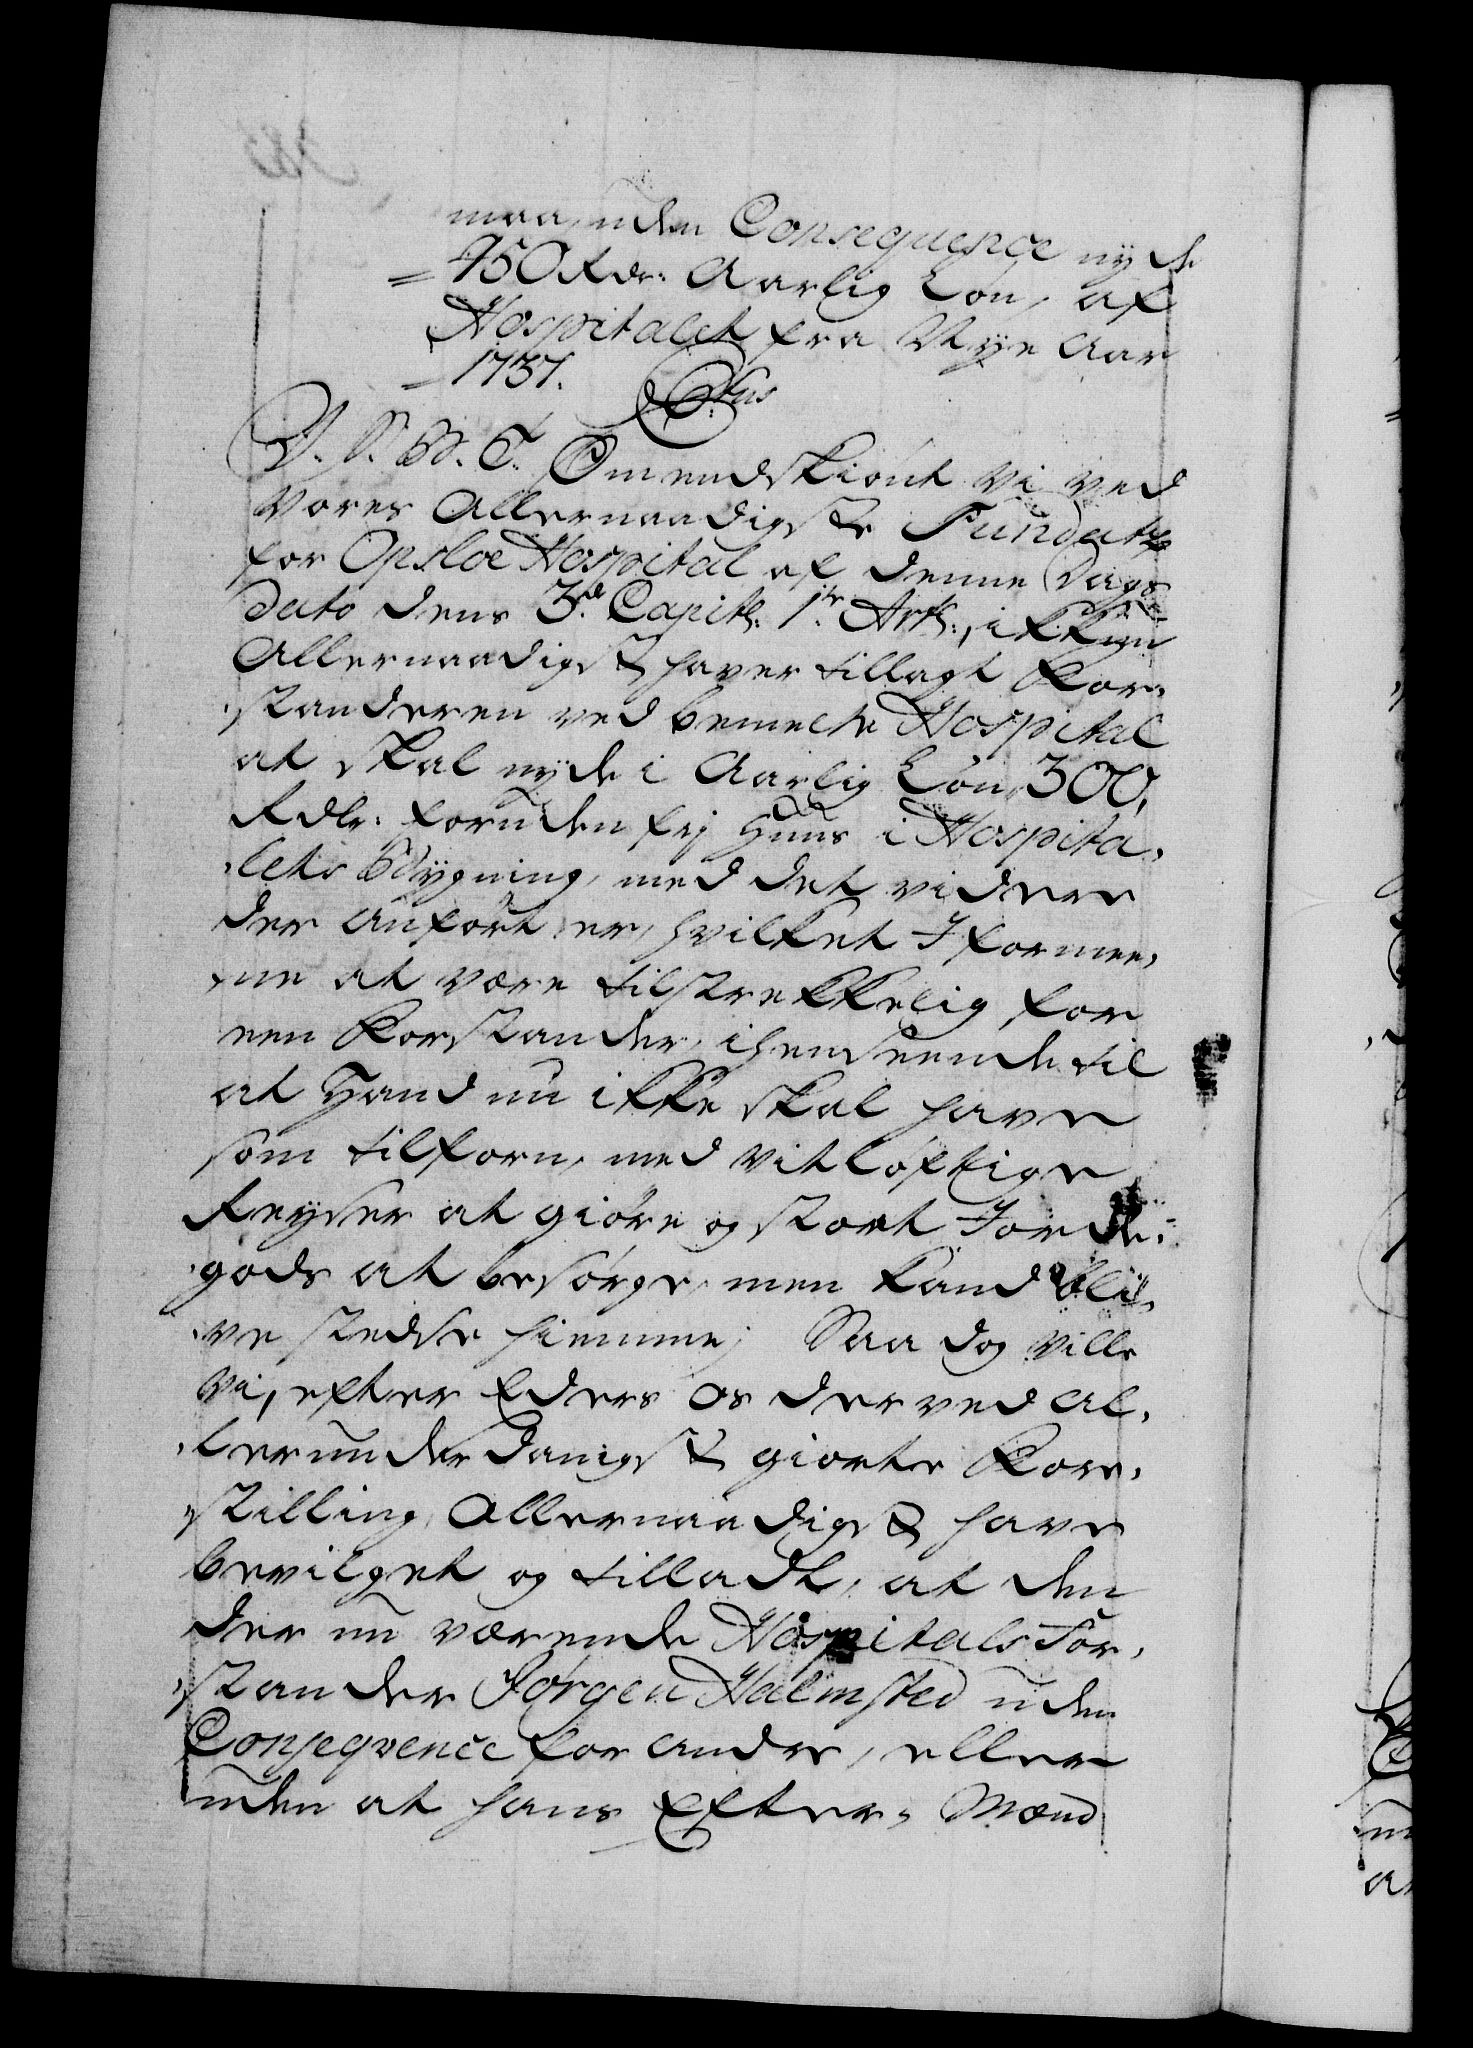 maa, uden Consequence nyde
= 450 Rdr. Aarlig Løn, af
Hospitalet fra Nye Aar
= 1737.
V. S. B. T. Omendskiønt Vi ved
Vores Allernaadigste Fundatz
for Opsloe Hospital af denne Dags
Dato dens 3.de Capitl: 1.te Artl:, ikkun
Allernaadigst haver tillagt For-
standeren ved bemelte Hospital
at skal nyde i Aarlig Løn 300,
Rdlr. foruden frj Huus i Hospita-
lets Bygning, med det videre
der anført er, hvilket I formee-
ne at være tilstrekkelig for
een Forstander, i henseende til
at Hand nu ikke skal have
som tilforn, med vitløftige
Reyser at giøre og stort Jorde-
gods at besørge, men kand bli-
ve stedse hiemme; Saa dog ville
Vi, efter Eders os derved al-
lerunderdanigst giorte Fore-
stilling, Allernaadigst have
bevilget og tilladt, at den
der nu værende Hospitals For-
stander Jørgen Halmsted uden
Conseqvence for andre, eller
uden at hans Efter- Mænd